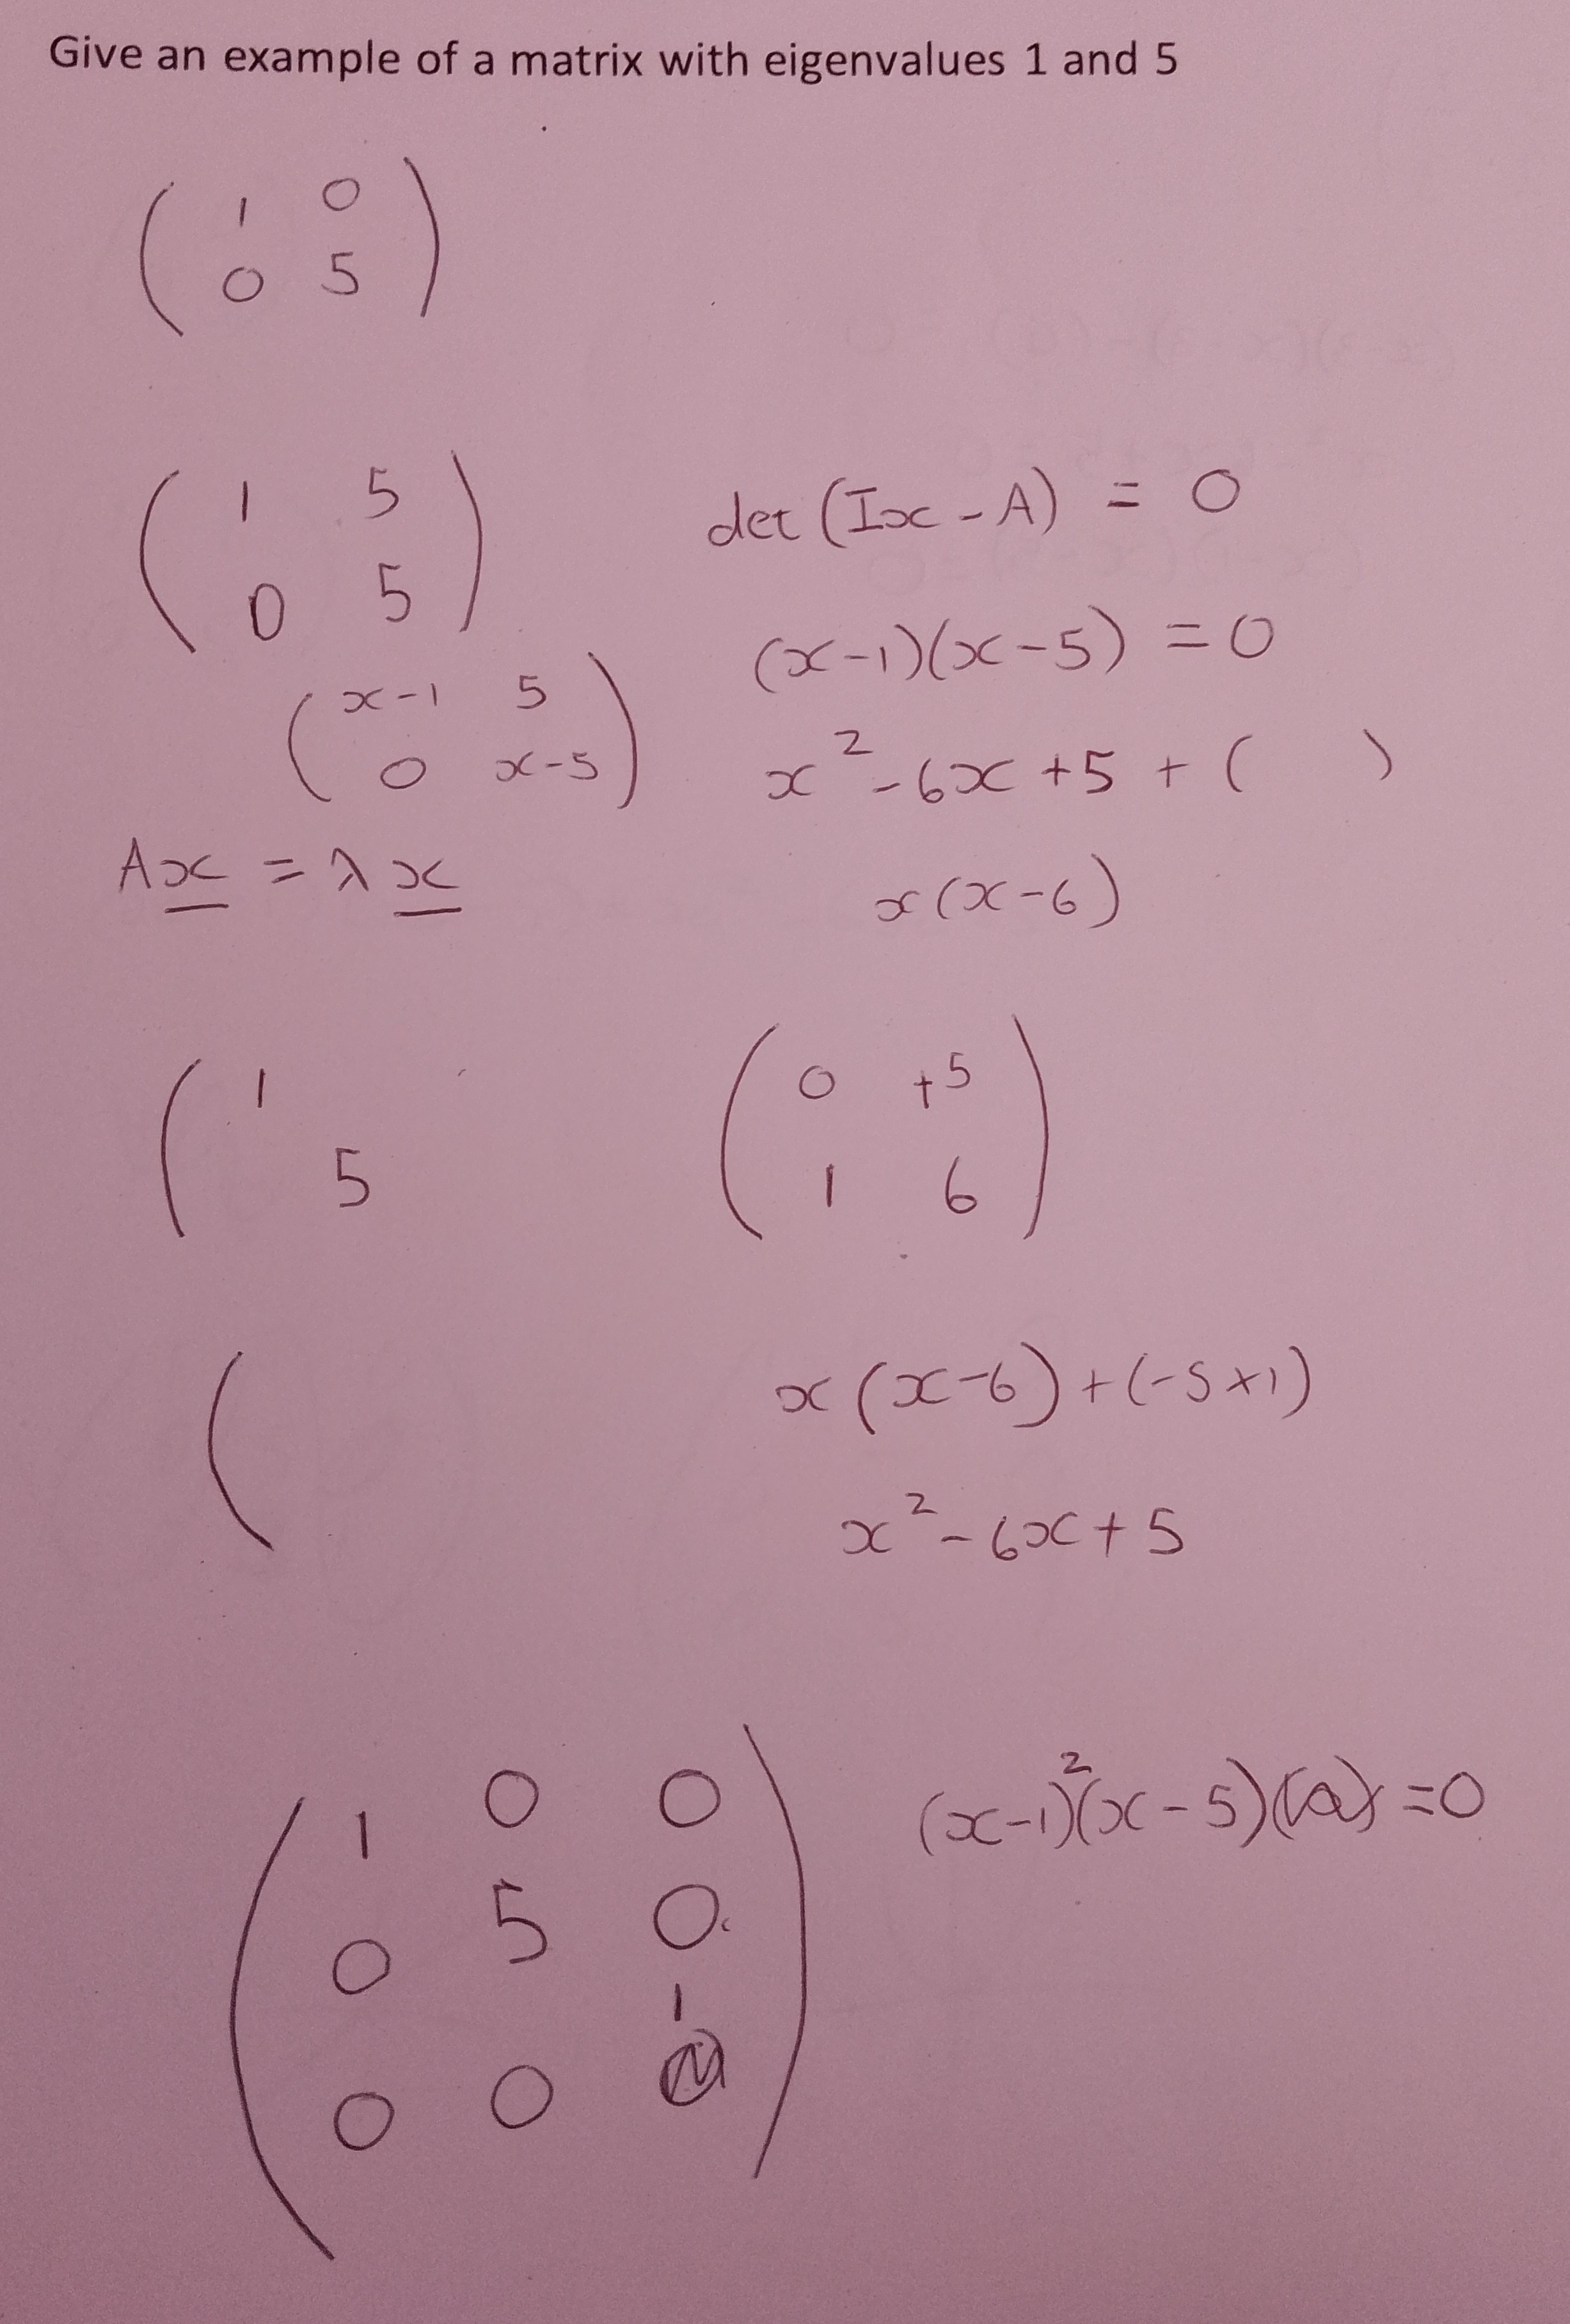 Give an example of a matrix with eigenvalues 1 and 5
( 1 0
0 5 )
( 1 5
0 5 )
det (Ix - A) = 0
(x-1)(x-5) = 0
( x-1 5
0 x-5 )
x² - 6x + 5 + ( )
Ax = λx
x(x-6)
( 1
5
( 0 +5
1 6 )
(
x(x-6) + (-5×1)
x² - 6x + 5
( 1 0 0
0 5 0
1
0 0 )
(x-1)²(x-5) = 0